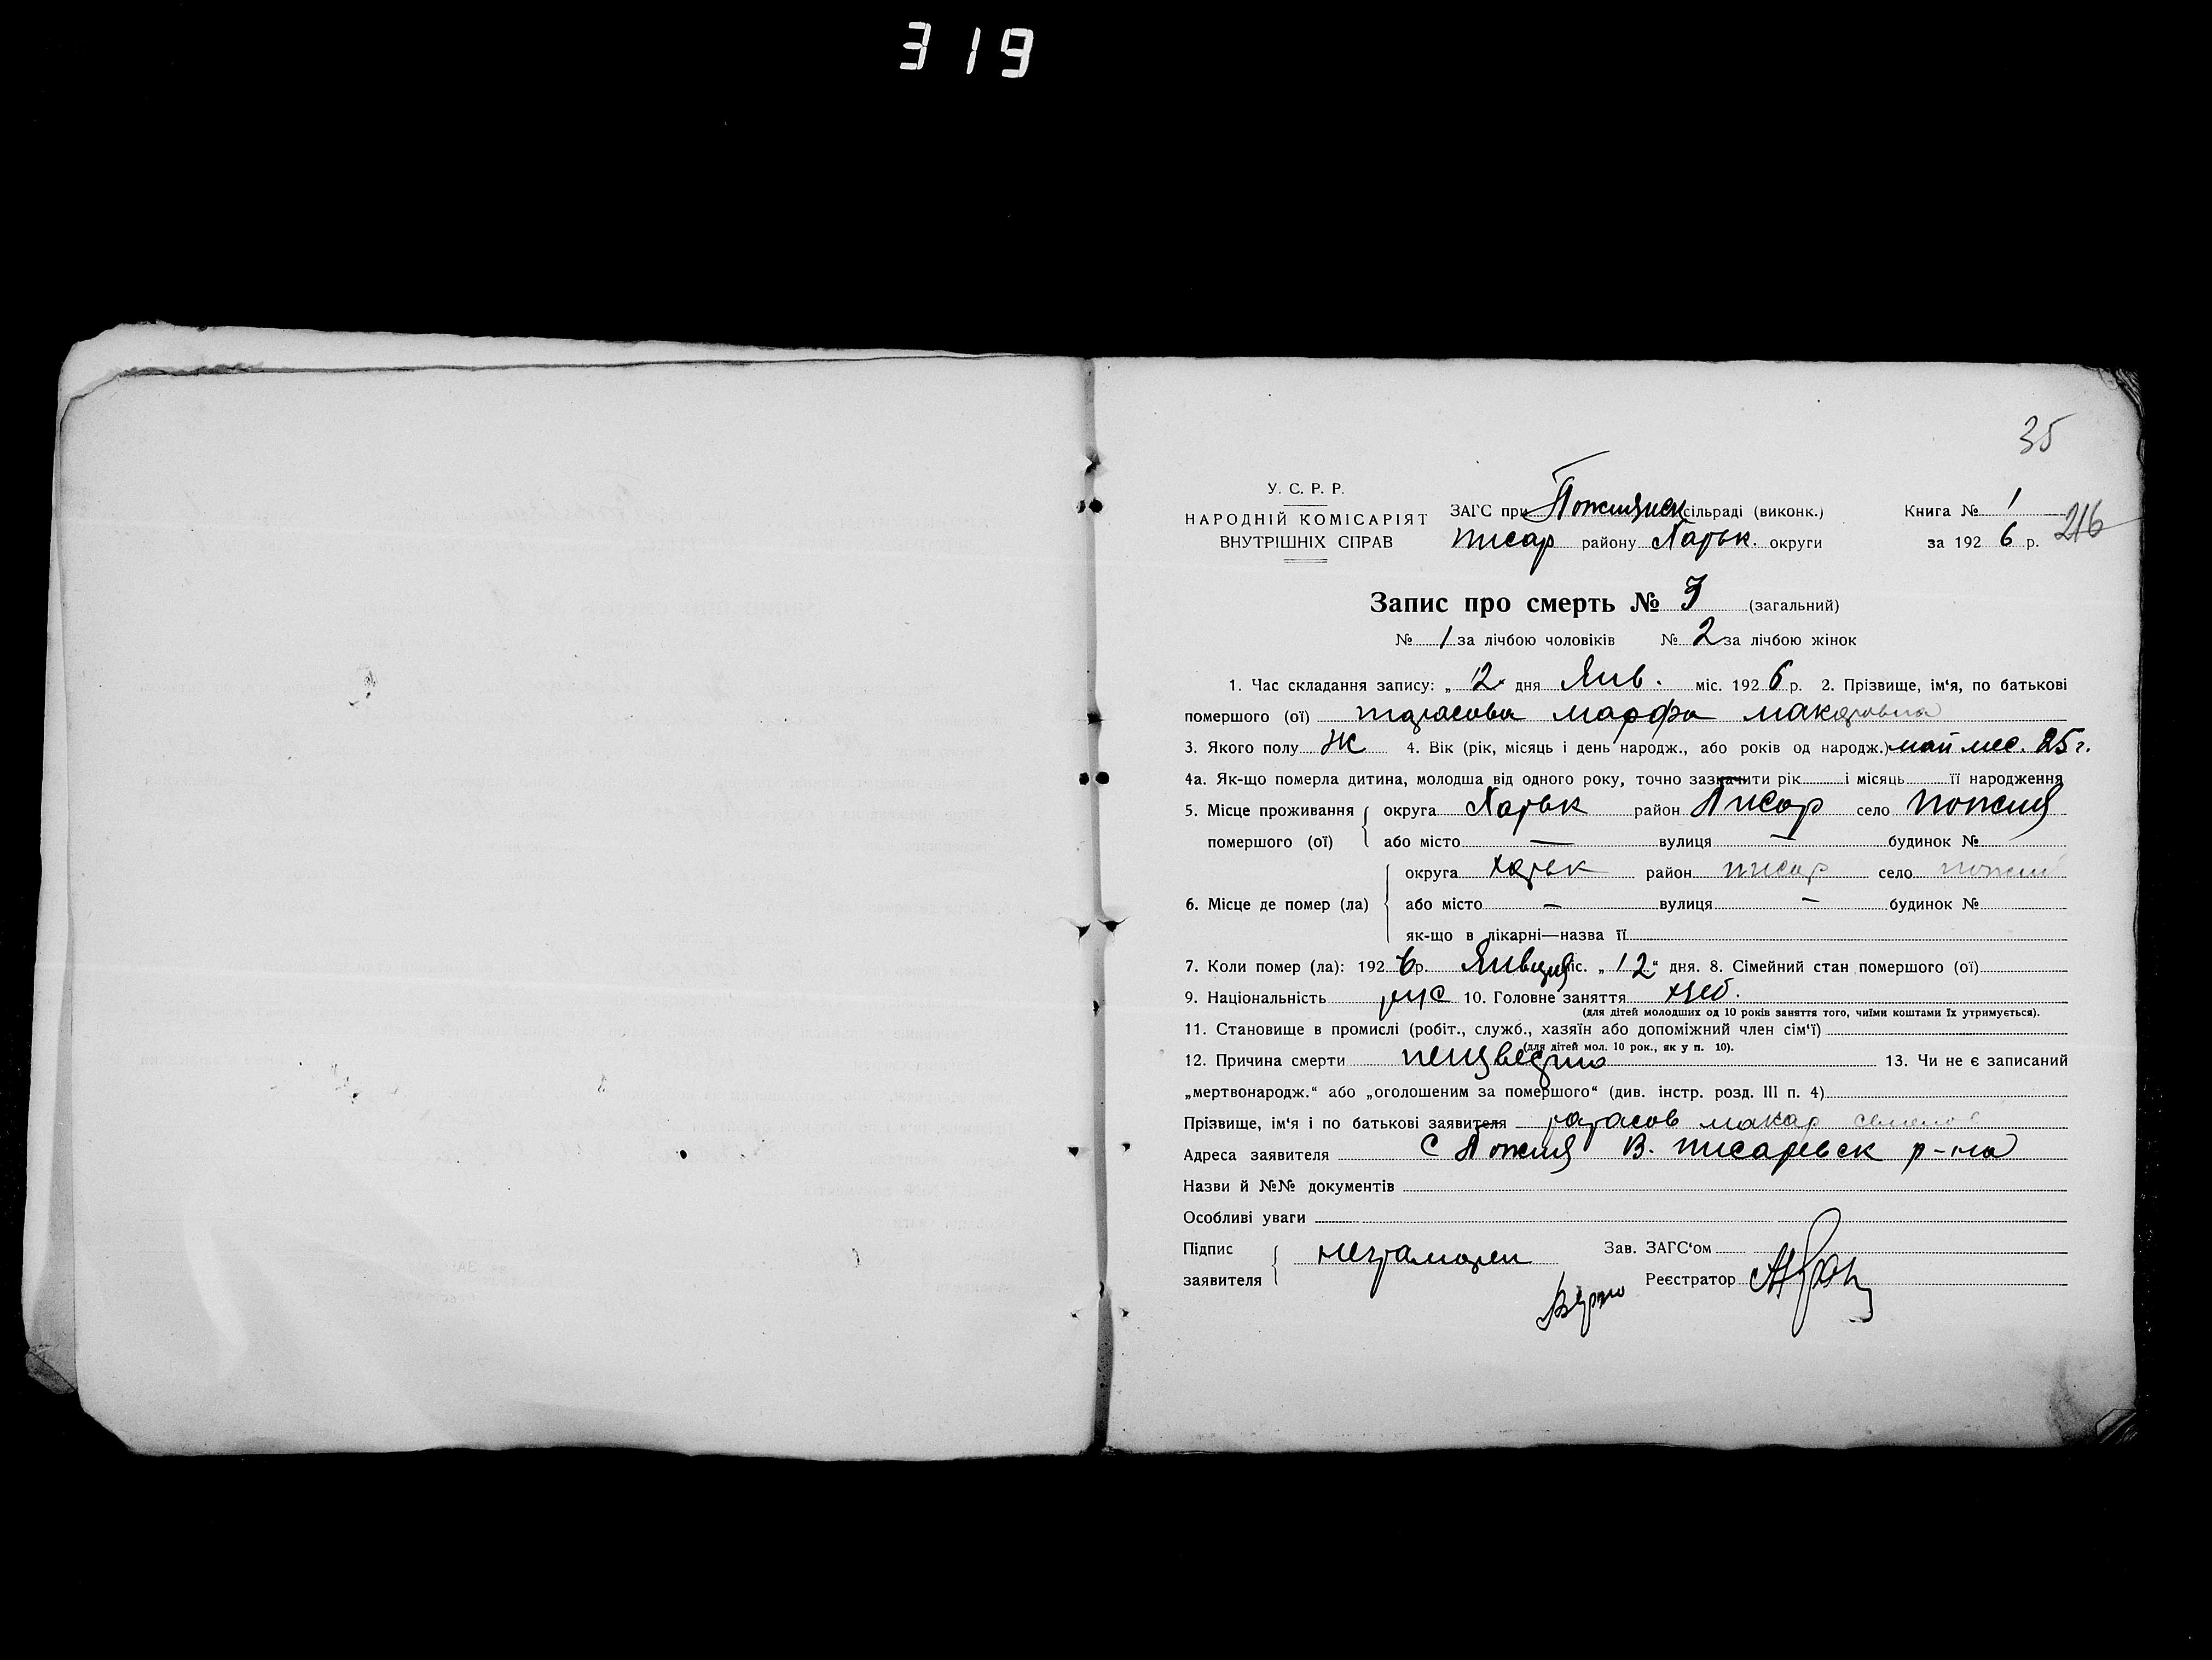 319
35
У. С. Р. Р.
НАРОДНІЙ КОМІСАРІЯТ
ВНУТРІШНІХ СПРАВ
ЗАГС при Пожнянск сільраді (виконк.)
писар району Харьк. округи
Книга № 1
за 192 6 р.
216
Запис про смерть № 3 (загальний)
№ 1 за лічбою чоловіків № 2 за лічбою жінок
1. Час складання запису: „ 12 дня Янв. міс. 192 6 р. 2. Прізвище, ім‘я, по батькові
помершого (ої) тарасова марфа макаровна
3. Якого полу Ж 4. Вік (рік, місяць і день народж., або років од народж.) май мес. 25 г.
4а. Як-що померла дитина, молодша від одного року, точно зазначити рік і місяць її народження
5. Місце проживання помершого (ої) округа Харьк район Писар село пожня
або місто — вулиця — будинок №
6. Місце де помер (ла) округа харьк район писар село пожня
або місто — вулиця — будинок №
як-що в лікарні—назва її
7. Коли помер (ла): 192 6 р. Января міс. „ 12 “ дня. 8. Сімейний стан помершого (ої)
9. Національність рус 10. Головне заняття хлеб.
(для дітей молодших од 10 років заняття того, чиїми коштами їх утримується).
11. Становище в промислі (робіт., служб., хазяїн або допоміжний член сім‘ї)
(для дітей мол. 10 рок., як у п. 10).
12. Причина смерти неизвестно 13. Чи не є записаний
„мертвонародж.“ або „оголошеним за помершого“ (див. інстр. розд. III п. 4)
Прізвище, ім‘я і по батькові заявителя тарасов макар семенов
Адреса заявителя с Пожня В. писаревск р-на
Назви й №№ документів
Особливі уваги
Підпис заявителя неграмотен
Зав. ЗАГС‘ом
Реєстратор
Верно